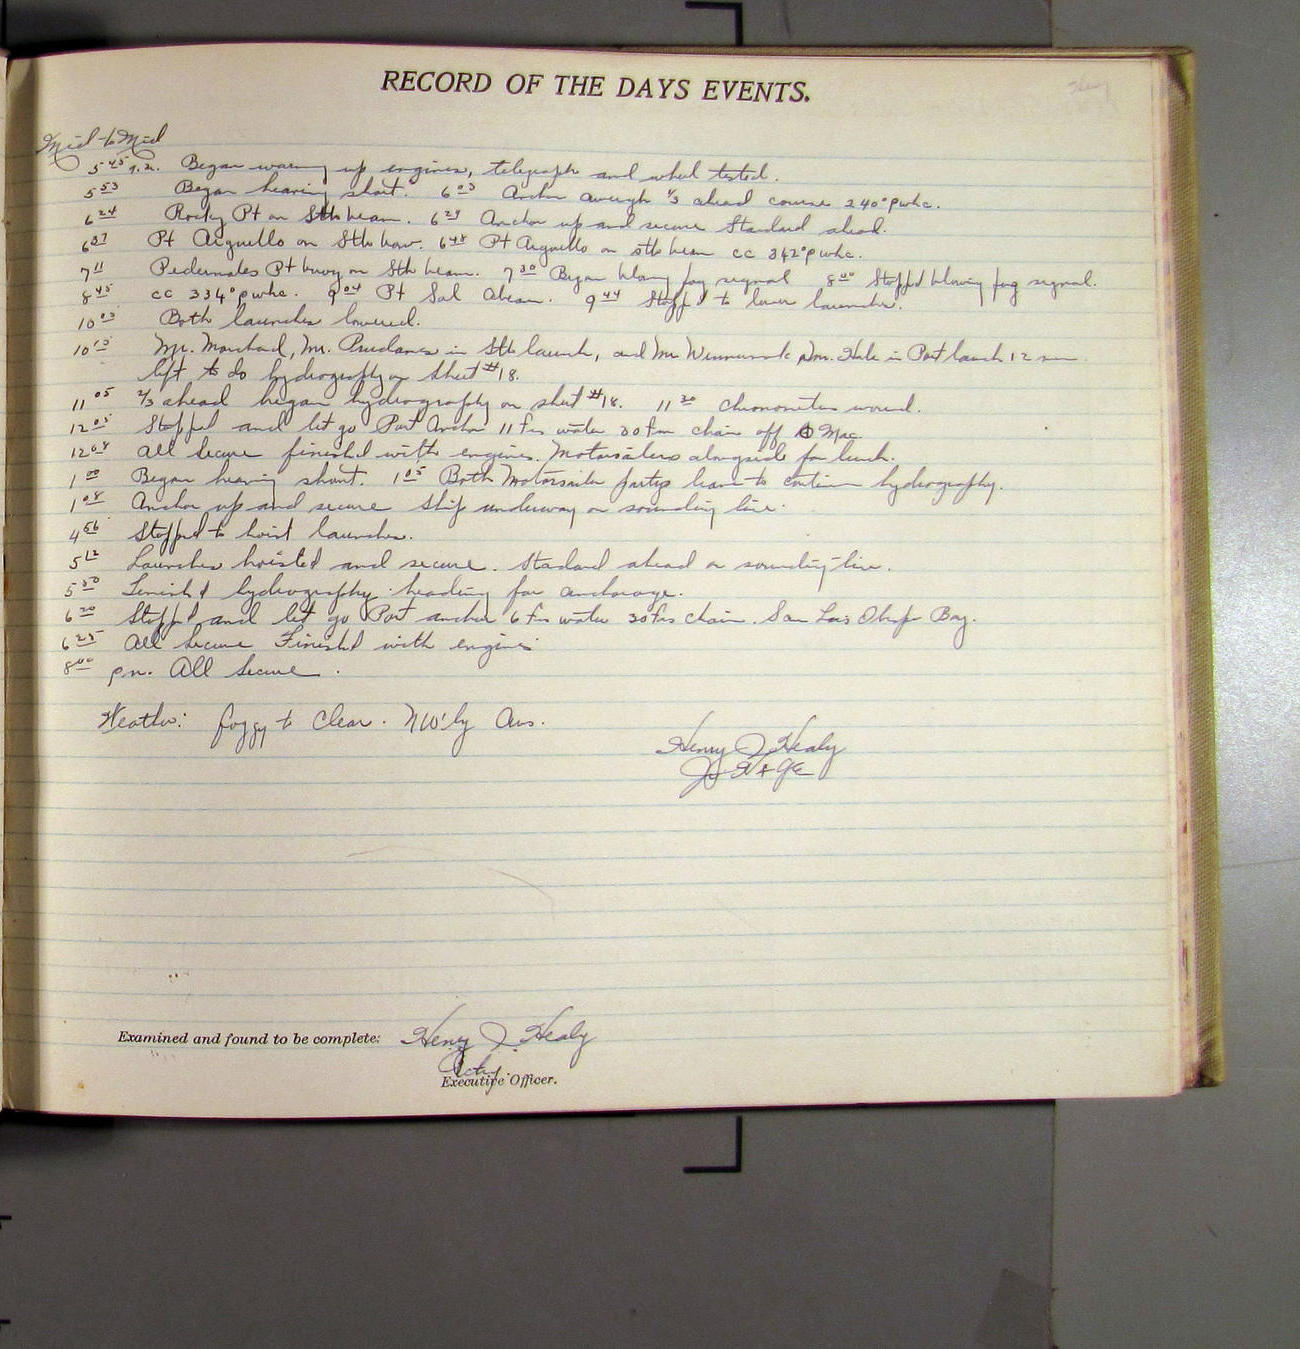 RECORD OF THE DAYS EVENTS.
Mid to Mid
5 45 a.m. Began warming up engines, telegraph and wheel tested.
5 53 Began heaving short. 6 03 Anchor aweigh 1/3 ahead course 240° pwhc.
6 24 Rocky Pt on Stb beam. 6 29 Anchor up and secure Standard ahead.
6 37 Pt Arguello on Stb bow. 6 48 Pt Arguello on stb beam cc 342° pwhc.
7 11 Pedernales Pt buoy on Stb beam. 7 30 Began blowing fog signal 8 00 Stopp'd blowing fog signal.
8 45 cc 334° pwhc. 9 04 Pt Sal Abeam. 9 44 Stopp'd to lower launches.
10 03 Both launches lowered.
10 15 Mr. in Stb launch, and Mr. in Port launch 12 men
left to do hydrography on Sheet #18.
11 05 2/3 ahead began hydrography on sheet #18. 11 30 Chronometers wound.
12 05 Stopped and let go Port Anchor 11 fms water 30 fm chain off Mac
12 08 All Secure finished with engines. Motorsailers alongside for lunch.
1 00 Began heaving short. 1 05 Both Motorsailer partys leave to continue hydrography.
1 08 Anchor up and secure Ship underway on sounding line.
4 56 Stopp'd to hoist launches.
5 12 Launches hoisted and secure. Standard ahead on sounding line.
5 50 Finish'd hydrography heading for anchorage.
6 20 Stopp'd and let go Port anchor 6 fms water 30 fms chain. San Luis Obispo Bay.
6 25 All Secure Finish'd with engines
8 00 p.m. All Secure.
Weather: foggy to Clear. NW'ly Airs.
Henry J. Healy
Examined and found to be complete: Henry J. Healy
Actg.
Executive Officer.